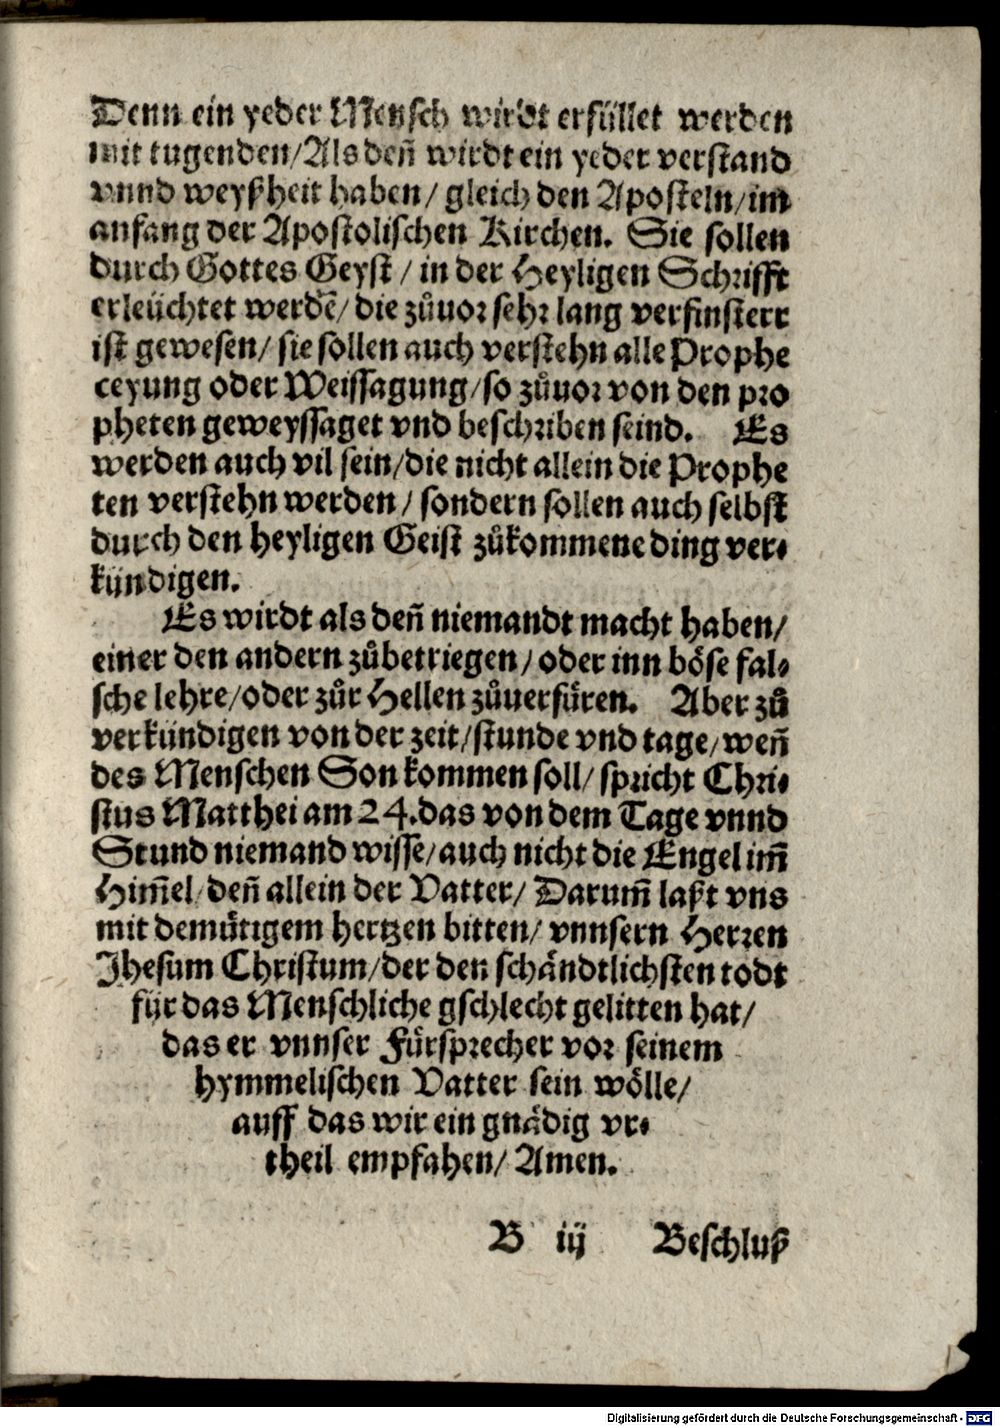 Denn ein yeder Mensch wirdt erfüllet werden
mit tugenden/Als deñ wirdt ein yeder verstand
vnnd weyßheit haben/ gleich den Aposteln/im
anfang der Apostolischen Kirchen. Sie sollen
durch Gottes Geyst / in der Heyligen Schrifft
erleüchtet werdẽ/ die zůuor sehr lang verfinstert
ist gewesen/ sie sollen auch verstehn alle Prophe
ceyung oder Weissagung/so zůuor von den pro
pheten geweyssaget vnd beschriben seind. Es
werden auch vil sein/die nicht allein die Prophe
ten verstehn werden/ sondern sollen auch selbst
durch den heyligen Geist zůkommene ding ver⸗
kündigen.
Es wirdt als deñ niemandt macht haben/
einer den andern zůbetriegen/oder inn böse fal⸗
sche lehre/oder zůr Hellen zůuerfüren. Aber zů
verkündigen von der zeit/stunde vnd tage/weñ
des Menschen Son kommen soll/ spricht Chri⸗
stus Matthei am 24.das von dem Tage vnnd
Stund niemand wisse/auch nicht die Engel im̃
Him̃el/deñ allein der Vatter/ Darum̃ laßt vns
mit demütigem hertzen bitten/ vnnsern Herren
Jhesum Christum/der den schändtlichsten todt
für das Menschliche gschlecht gelitten hat/
das er vnnser Fürsprecher vor seinem
hymmelischen Vatter sein wölle/
auff das wir ein gnädig vr⸗
theil empfahen/ Amen.
B iij Beschluß
Digitalisierung gefördert durch die Deutsche Forschungsgemeinschaft - DFG